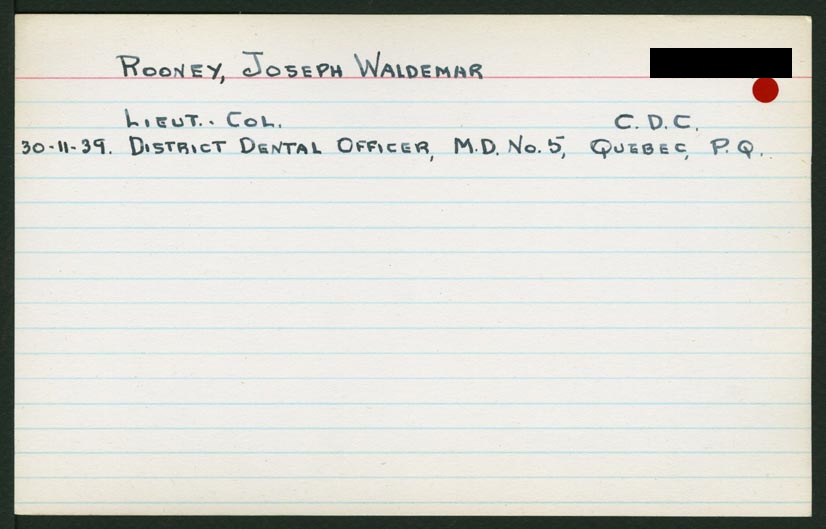 ROONEY, JOSEPH WALDEMAR
LIEUT.. COL. C.D.C.
30-11-39. DISTRICT DENTAL OFFICER, M.D. No. 5, QUEBEC, P.Q.